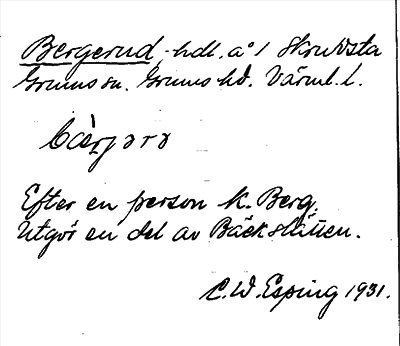 Bergerud, hdl. å 1 Skruvsta
Grums sn. Grums hd. Värml. l.
Efter en person k. Berg.
Utgör en del av Bäckslätten.
C.W. Esping 1931.